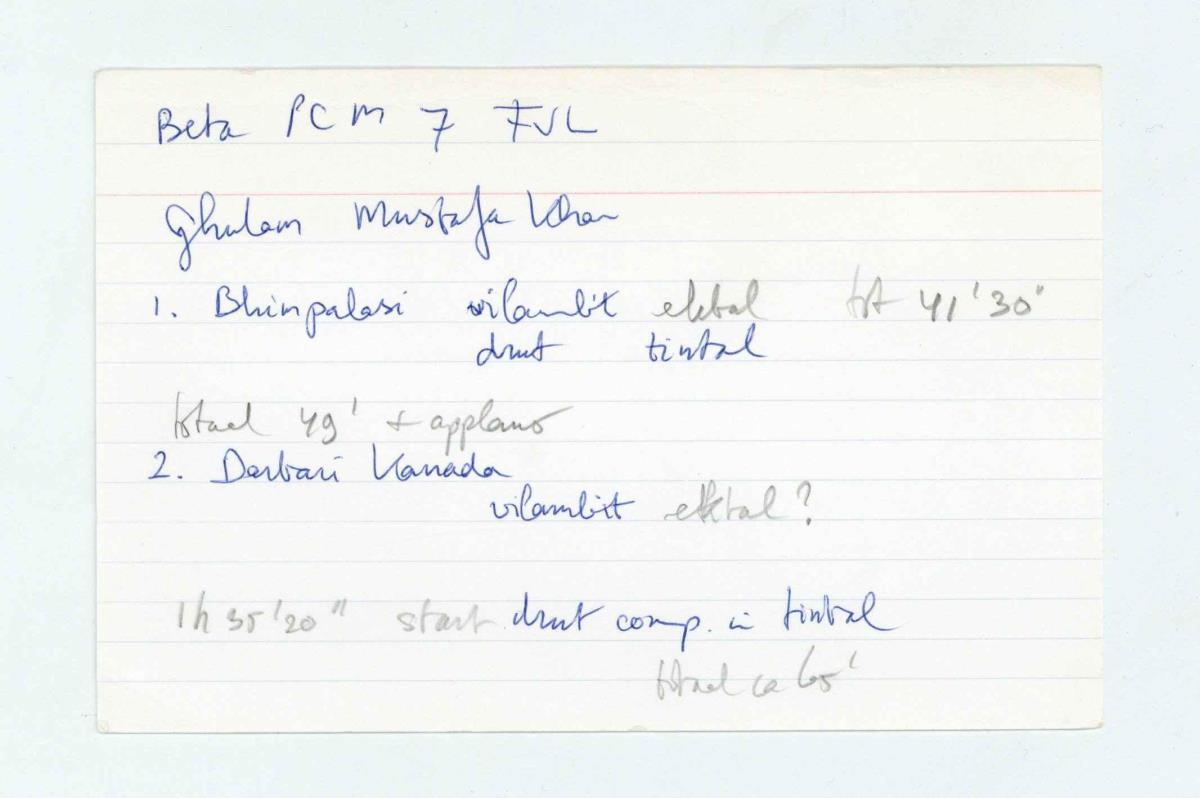 Beta PCM 7 FVL
Ghulam Mustafa Khan
1. Bhimpalasi vilambit ektal tot 41'30"
drut tintal
totaal 49' + applaus
2. Darbari Kanada
vilambit ektal?
1h 35'20" start drut comp. in tintal
totaal ca 65'